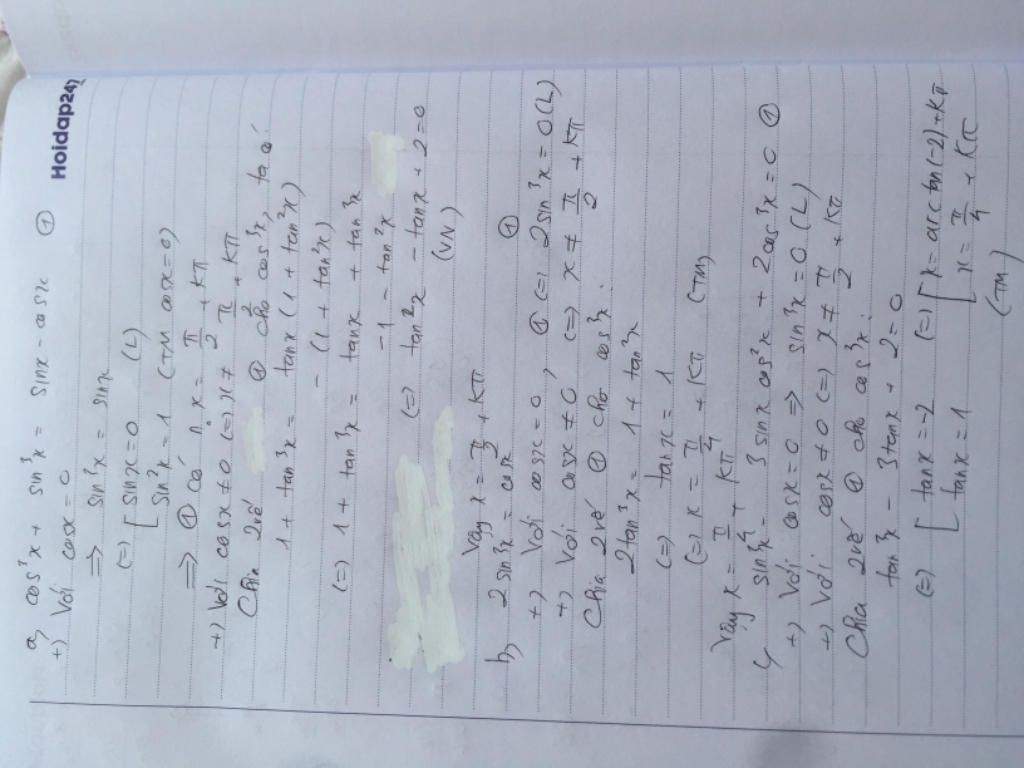 Hoidap247
a, cos³x + sin³x = sinx - cosx ①
+) Với cosx = 0
=> sin³x = sinx
(=) [ sinx = 0 (L)
[ sin²x = 1 (TM cosx = 0)
=> ① có n x = π/2 + kπ
+) Với cosx ≠ 0 (=) x ≠ π/2 + kπ
Chia 2 vế ① cho cos³x, ta có:
1 + tan³x = tanx (1 + tan²x)
- (1 + tan²x)
(=) 1 + tan³x = tanx + tan³x
- 1 - tan²x
(=) tan²x - tanx + 2 = 0
(VN)
Vậy x = π/2 + kπ
b, 2sin³x = cosx ①
+) Với cosx = 0, ① (=) 2sin³x = 0 (L)
+) Với cosx ≠ 0 (=) x ≠ π/2 + kπ
Chia 2 vế ① cho cos³x:
2tan³x = 1 + tan²x
(=) tanx = 1
(=) x = π/4 + kπ (TM)
Vậy x = π/4 + kπ
sin³x - 3sinx cos²x + 2cos³x = 0 ①
+) Với cosx = 0 => sin³x = 0 (L)
+) Với cosx ≠ 0 (=) x ≠ π/2 + kπ
Chia 2 vế ① cho cos³x:
tan³x - 3tanx + 2 = 0
(=) [ tanx = -2 (=) [ x = arctan(-2) + kπ
[ tanx = 1 [ x = π/4 + kπ
(TM)